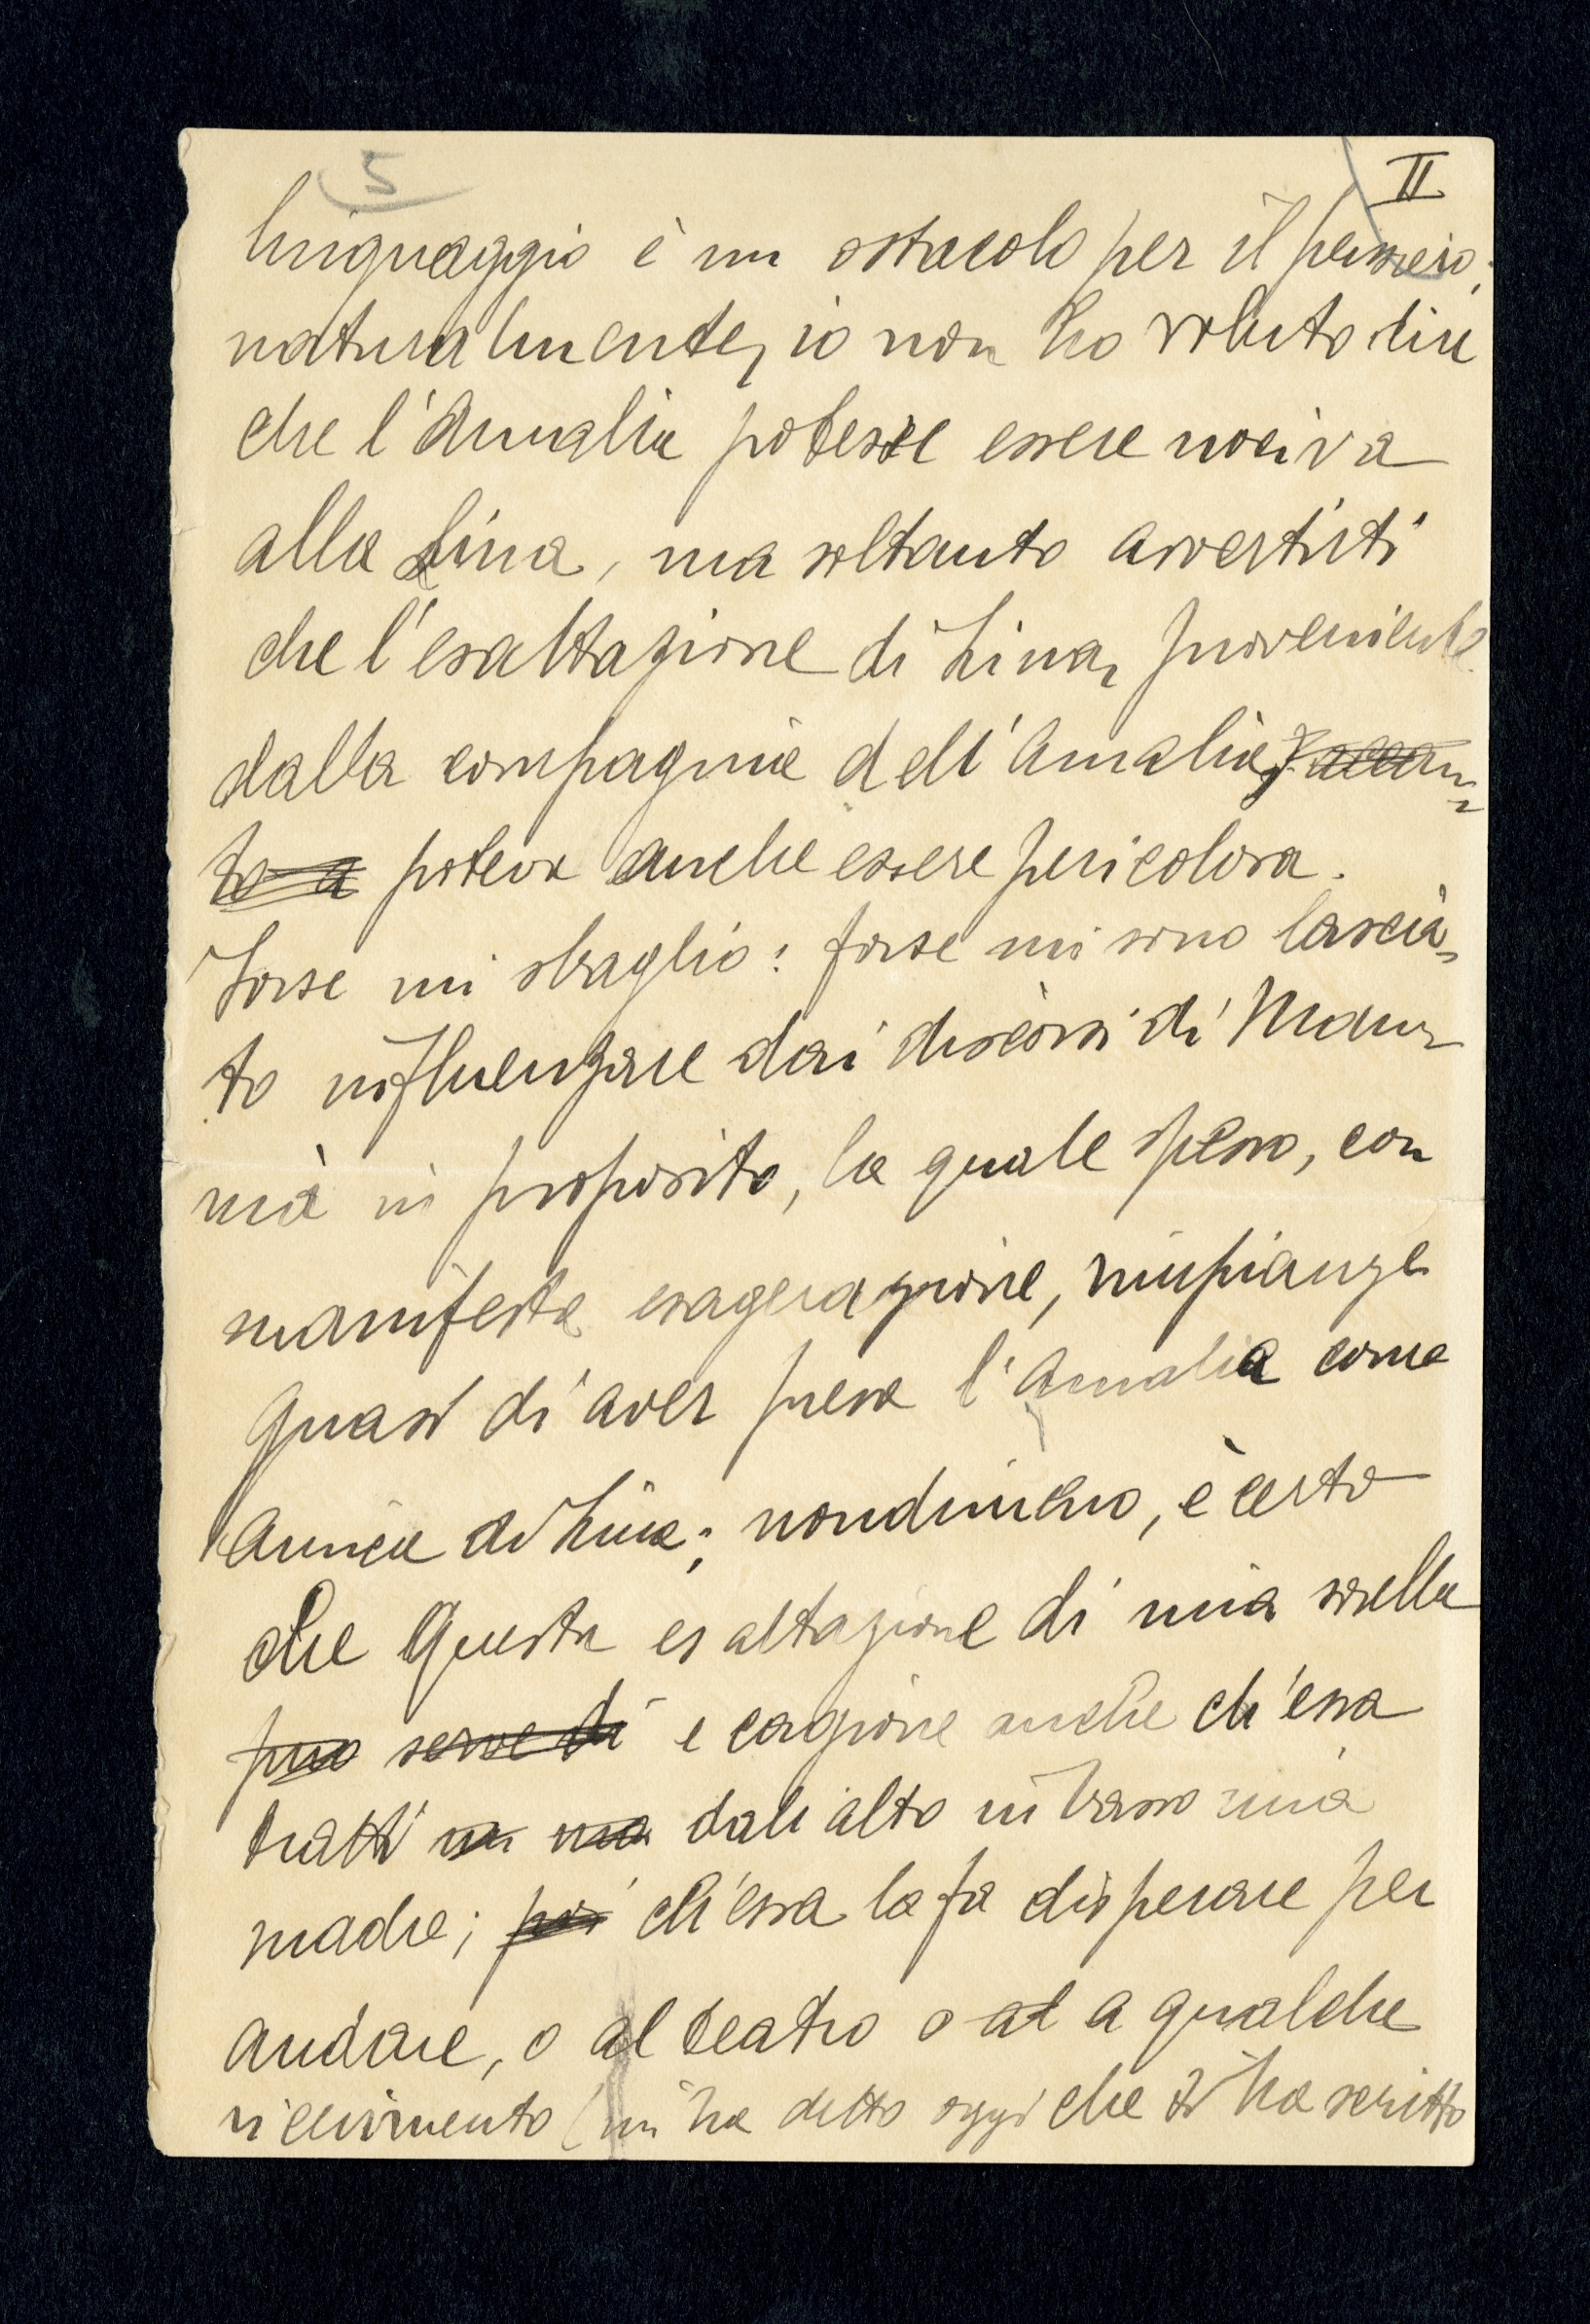 5 II
linguaggio è un ostacolo per il pensiero;
naturalmente, io non ho voluto dire
che l'Amalia potesse essere nociva
alla Lina, ma soltanto avvertirti
che l'esaltazione di Lina, proveniente
dalla compagnia dell'Amalia,
to a poteva anche essere pericolosa.
Forse mi sbaglio: forse mi sono lascia-
to influenzare dai discorsi di Mam-
mà in proposito, la quale spesso, con
manifesta esagerazione, rimpiange
quasi di aver presa l'Amalia come
amica di Lina; nondimeno, è certo
che questa esaltazione di mia sorella
può serve di è cagione anche ch'essa
tratti dall'alto in basso mia
madre; poi ch'essa la fa disperare per
andare, o al teatro o al a qualche
ricevimento (mi ha detto oggi che ti ha scritto